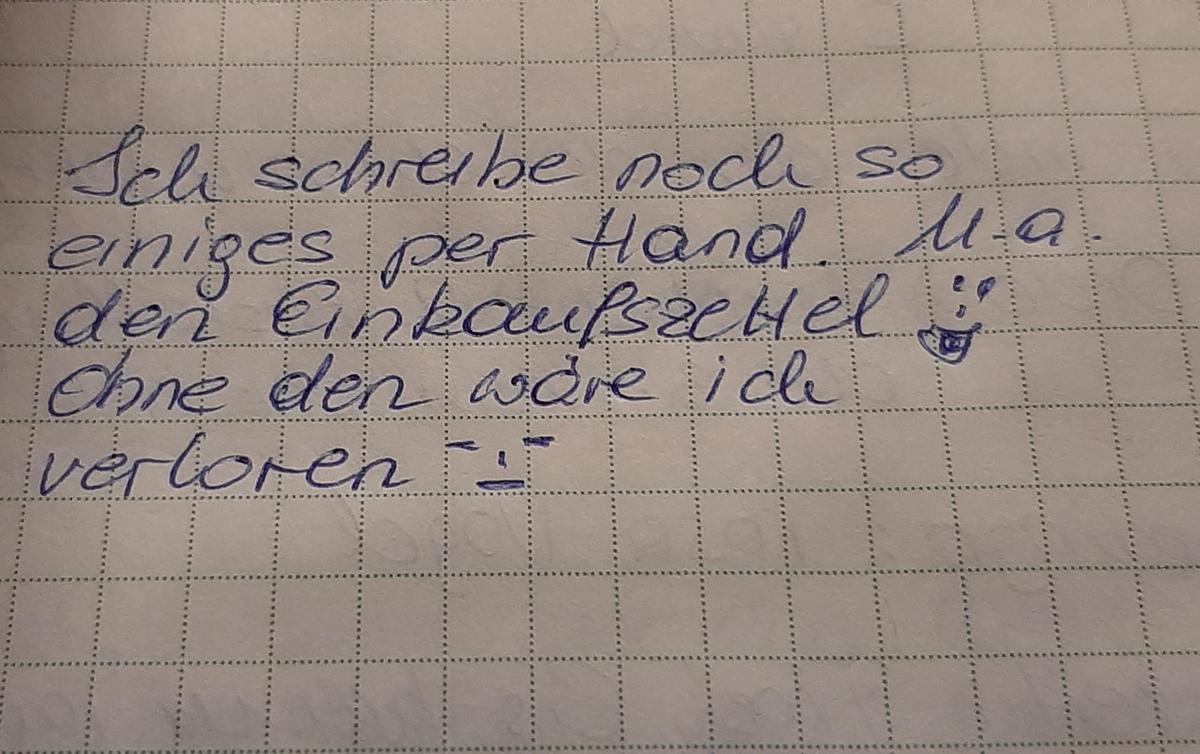 Ich schreibe noch so
einiges per Hand. U.a.
den Einkaufszettel
Ohne den wäre ich
verloren